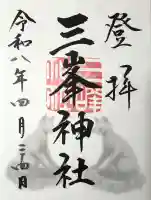 登拝
三峯神社
令和八年四月二四日